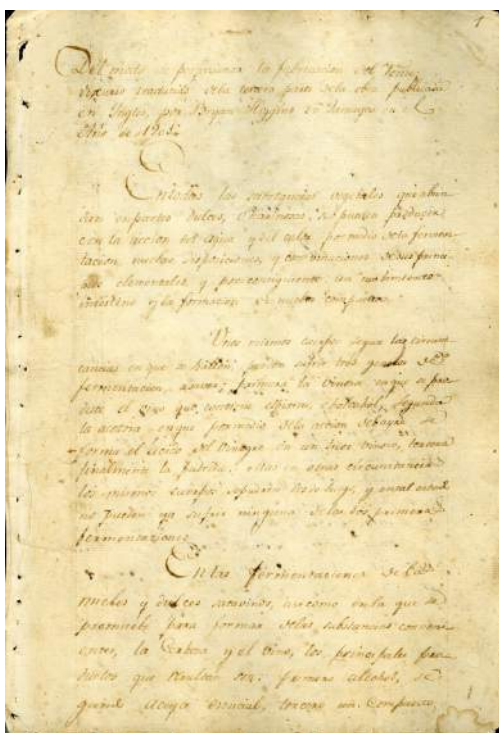 Del modo de perfeccionar la fabricacion del
Discurso traducido de la tercera parte de la obra publicada
en Ingles, por Bryan Higgins en Jamayca en el
Año de 180
En todas las substancias vegetales que abun
dan en partes dulces, se pueden producir
con la accion del agua y del calor por medio de la fermen
tacion nuevas disposiciones, y combinaciones de sus princi
pios elementales y por consiguiente un
intestino y la formacion de nuevos compuestos
Unos mismos cuerpos segun las circuns
tancias en que se hallan, pueden sufrir tres generos de
fermentacion, a saver: primera, la vinosa en que se pro
duce el vino que contiene espiritu, segunda
la acetosa en que por medio de la action del ayre se
forma el Acido del Vinagre de un licor vinoso, tercera
finalmente la putrida. Mas en otras circunstancias
los mismos cuerpos se pudren desde luego, y en tal estado
no pueden ya sufrir ninguna de las dos primeras
fermentaciones
En las fermentaciones de las
mieles y dulces asi como en la que se
promueve para formar de las substancias
la Cerbeza y el Vino, los principales pro
ductos que resultan son: primero alcohol, se
gundo Aceyte esencial, tercero un Compuesto